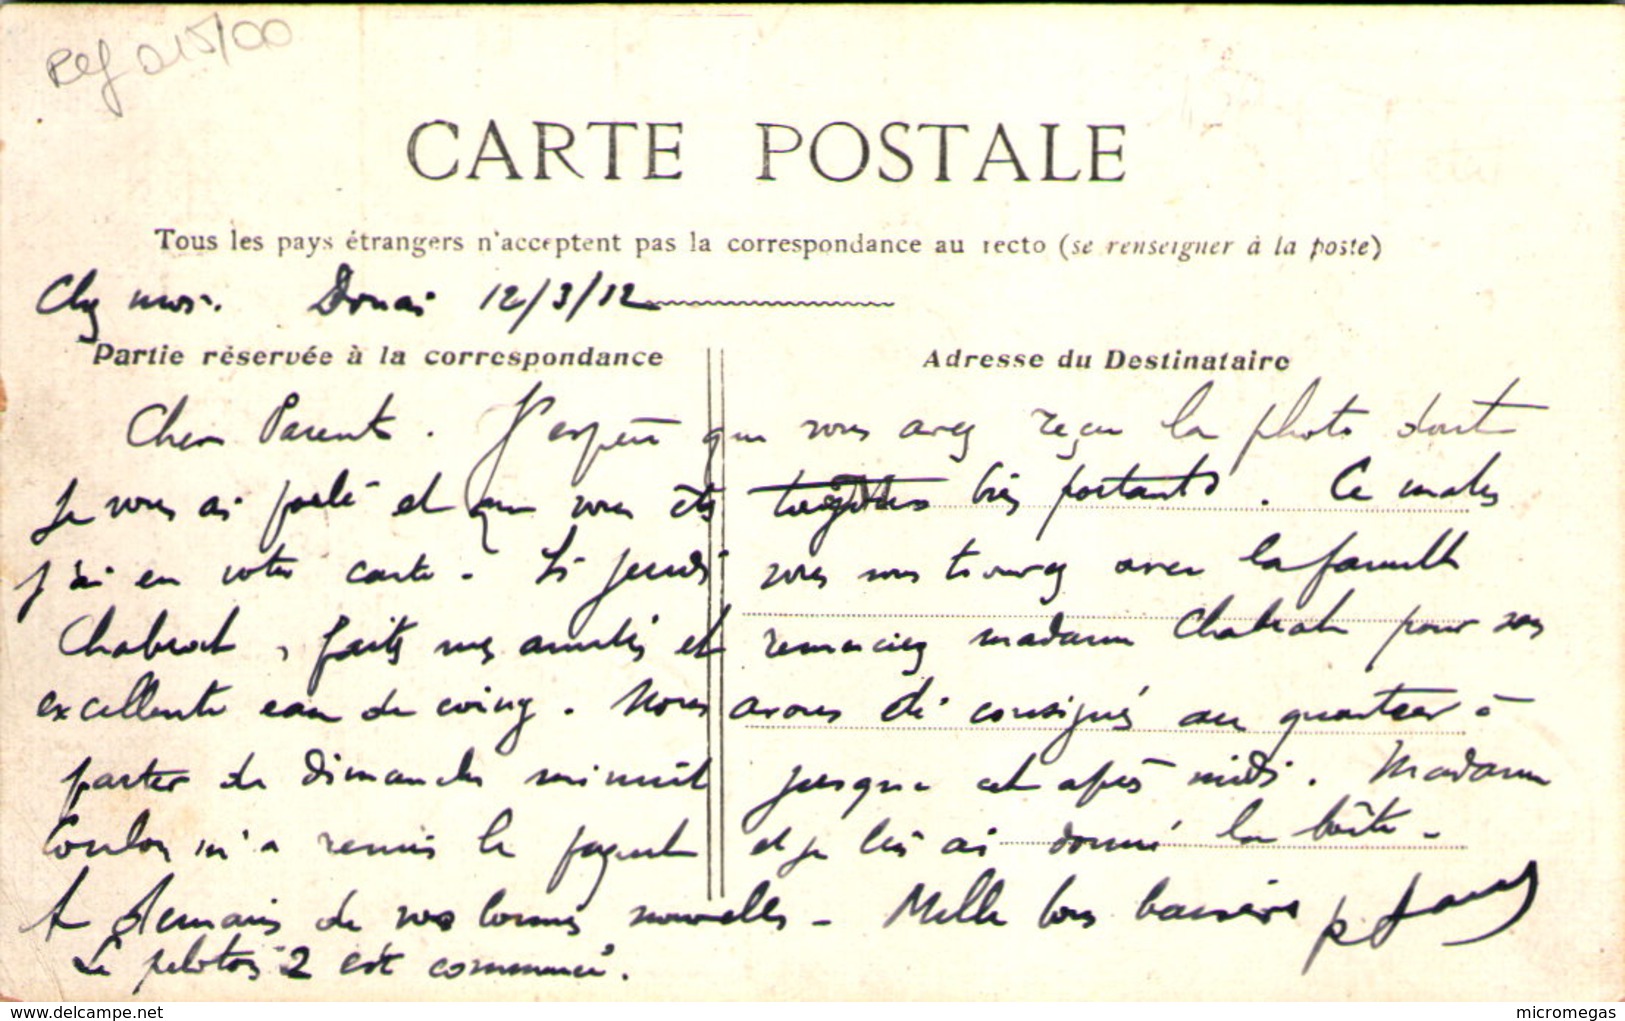 Ref 015/00
CARTE POSTALE
Tous les pays étrangers n'acceptent pas la correspondance au recto (se renseigner à la poste)
Chez moi. Douai 12/3/12
Partie réservée à la correspondance
Adresse du Destinataire
Chers Parents. J'espère que vous avez reçu la photo dont
je vous ai parlé et que vous êtes toujours bien portants. Ce matin
j'ai eu votre carte. Si jeudi vous vous trouvez avec la famille
Chabrat, faites mes amitiés et remerciez madame Chabrat pour son
excellente eau de coing. Nous avons été consignés au quartier à
partir de dimanche minuit jusque cet après midi. Madame
Coulon m'a remis le paquet et je lui ai donné la boîte.
A demain de vos bonnes nouvelles. Mille bons baisers
Le peloton 2 est commencé.
delcampe.net
micromegas